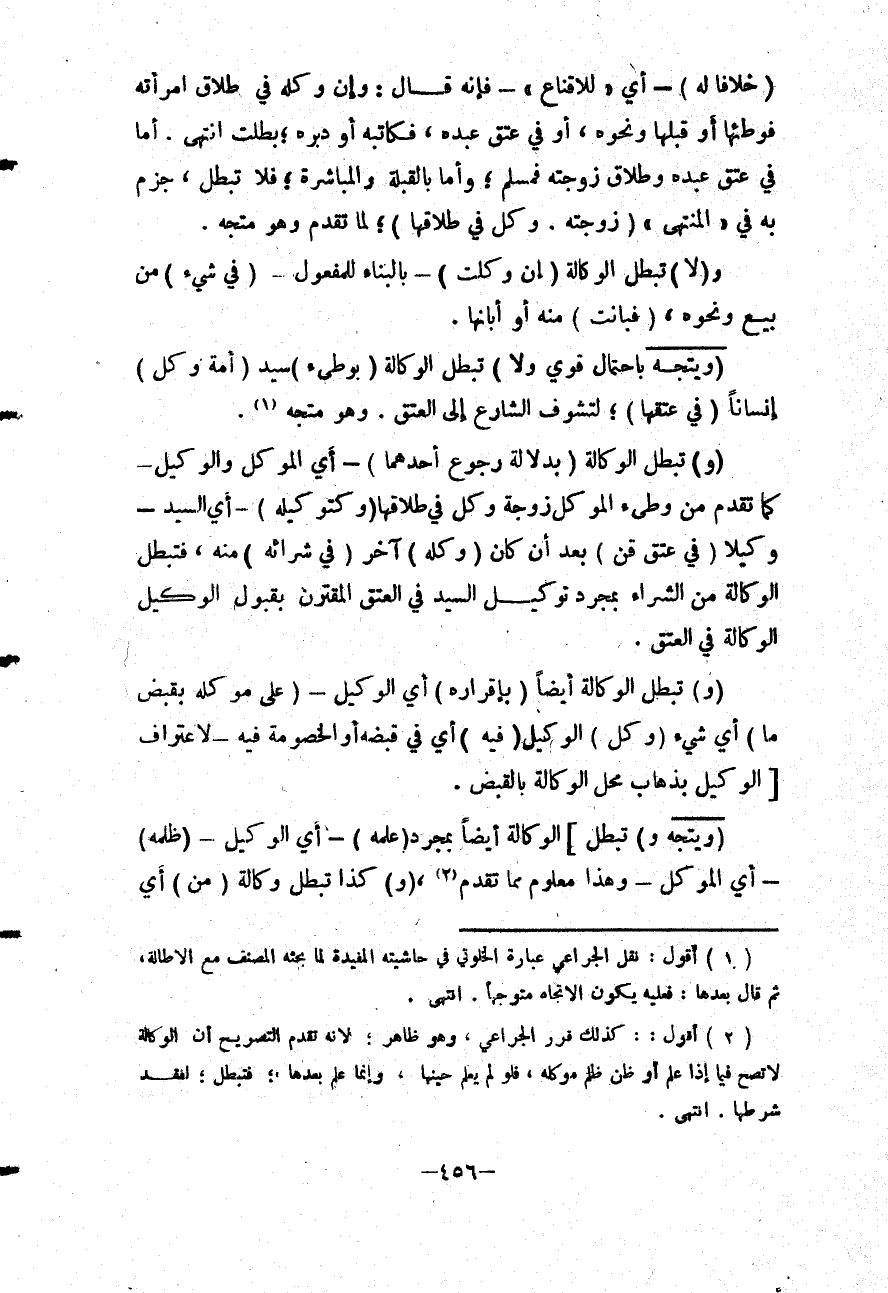 ( خلافا له ) – أي « للاقناع » – فإنه قــال : وإن وكله في طلاق امرأته
فوطئها أو قبلها ونحوه ، أو في عتق عبده ، فكاتبه أو دبره ؛ بطلت انتهى . أما
في عتق عبده وطلاق زوجته فمسلم ؛ وأما بالقبلة والمباشرة ؛ فلا تبطل ، جزم
به في « المنتهى » ( زوجته . وكل في طلاقها ) ؛ لما تقدم وهو متجه .
و(لا) تبطل الوكالة ( إن وكلت ) – بالبناء للمفعول – ( في شيء ) من
بيــع ونحوه ، ( فبانت ) منه أو أبانها .
(ويتجــه باحتمال قوي ولا ) تبطل الوكالة ( بوطيء ) سيد ( أمة وكل )
إنساناً ( في عتقها ) ؛ لتشوف الشارع إلى العتق . وهو متجه (١) .
(و) تبطل الوكالة ( بدلالة رجوع أحدهما ) – أي الموكل والوكيل–
كما تقدم من وطيء الموكل زوجة وكل في طلاقها (وكتوكيله ) – أي السيد –
وكيلا ( في عتق قن ) بعد أن كان ( وكله ) آخر ( في شرائه ) منه ، فتبطل
الوكالة من الشراء بمجرد توكيــل السيد في العتق المقترن بقبول الوكيل
الوكالة في العتق .
(و) تبطل الوكالة أيضاً ( بإقراره ) أي الوكيل – ( على موكله بقبض
ما ) أي شيء (وكل ) الوكيل ( فيه ) أي في قبضه أو الخصومة فيه – لاعتراف
[ الوكيل بذهاب محل الوكالة بالقبض .
(ويتجه و) تبطل ] الوكالة أيضاً بمجرد (علمه ) – أي الوكيل – (ظلمه)
– أي الموكل – وهذا معلوم مما تقدم (٢) ، (و) كذا تبطل وكالة ( من ) أي
( ١ ) أقول : نقل الجراعي عبارة الخلوتي في حاشيته المفيدة لما بحثه المصنف مع الاطالة ،
ثم قال بعدها : فعليه يكون الاتجاه متوجهاً . انتهى .
( ٢ ) أقول : : كذلك قرر الجراعي ، وهو ظاهر ؛ لانه تقدم التصريح أن الوكالة
لا تصح فيما إذا علم أو ظن ظلم موكله ، فلو لم يعلم حينها ، وإنما علم بعدها ؛ فتبطل ؛ لفقــد
شرطها . انتهى .
–٤٥٦–